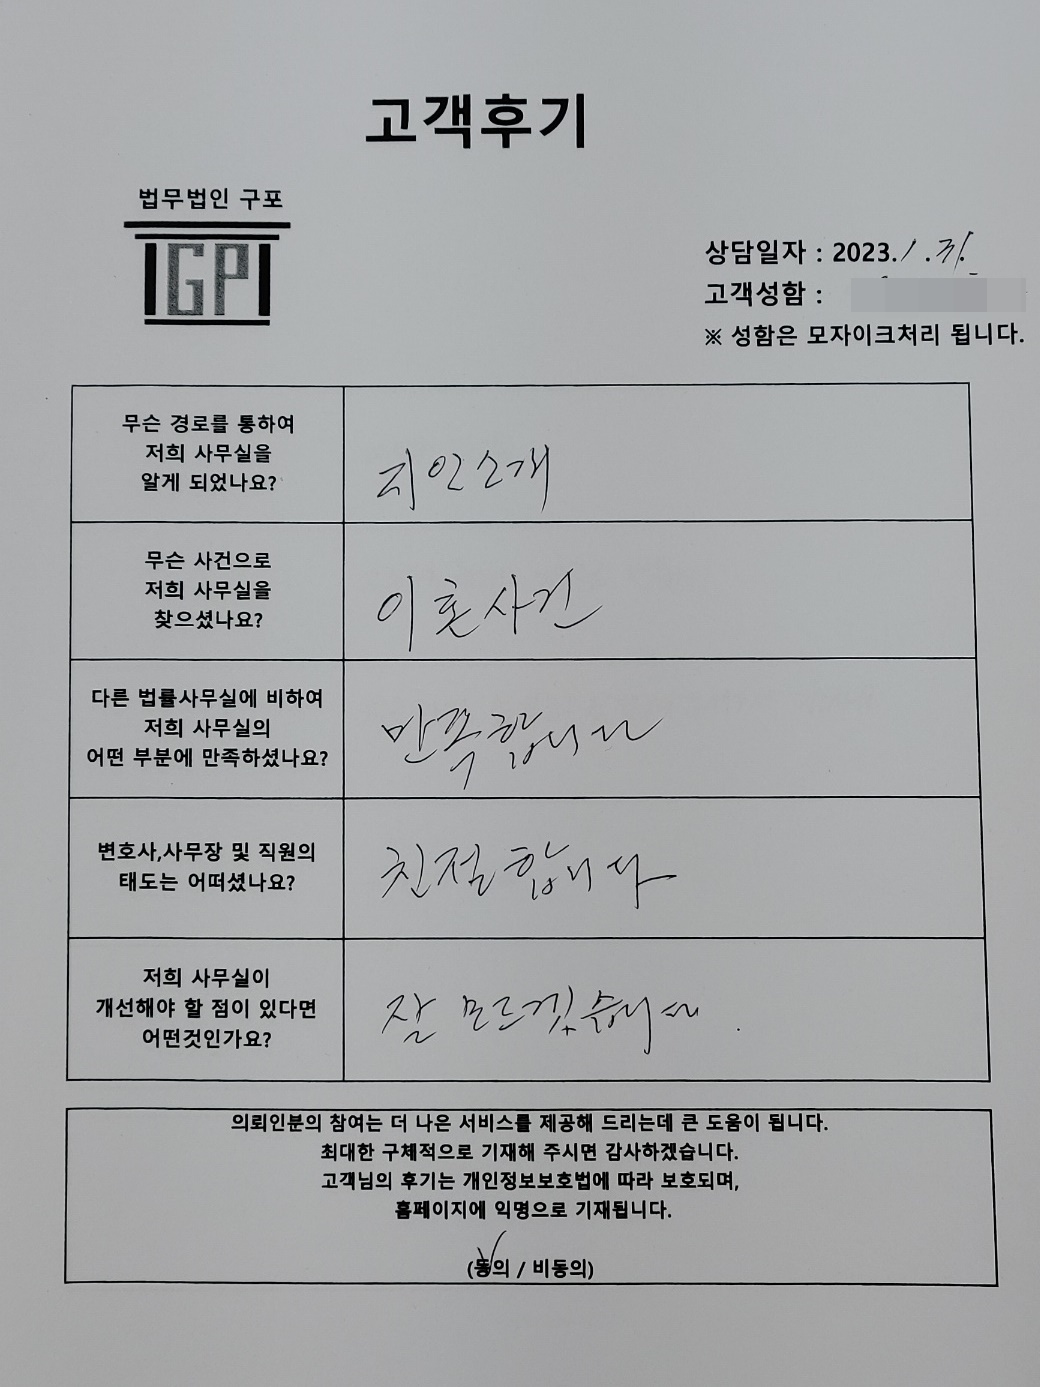 고객후기
법무법인 구포
GP
상담일자 : 2023. 1. 31.
고객성함 :
※ 성함은 모자이크처리 됩니다.
무슨 경로를 통하여
저희 사무실을
알게 되었나요?
지인소개
무슨 사건으로
저희 사무실을
찾으셨나요?
이혼사건
다른 법률사무실에 비하여
저희 사무실의
어떤 부분에 만족하셨나요?
만족합니다
변호사,사무장 및 직원의
태도는 어떠셨나요?
친절합니다
저희 사무실이
개선해야 할 점이 있다면
어떤것인가요?
잘 모르겠습니다.
의뢰인분의 참여는 더 나은 서비스를 제공해 드리는데 큰 도움이 됩니다.
최대한 구체적으로 기재해 주시면 감사하겠습니다.
고객님의 후기는 개인정보보호법에 따라 보호되며,
홈페이지에 익명으로 기재됩니다.
(동의 / 비동의)